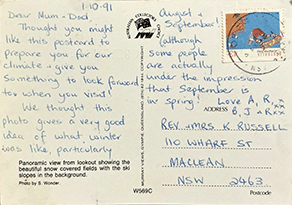 1·10·91
Dear Mum + Dad
Thought you might
like this postcard to
prepare you for our
climate + give you
something to look forward
to when you visit!
We thought this
photo gives a very good
idea of what winter
was like, particularly
August +
September!
(although
some people
are actually
under the impression
that September is
in spring!)
Love A, R,
B, J + R xx
Panoramic view from lookout showing the
beautiful snow covered fields with the ski
slopes in the background.
Photo by B. Wonder.
W569C
ADDRESS
REV + MRS K RUSSELL
110 WHARF ST
MACLEAN
NSW 2463